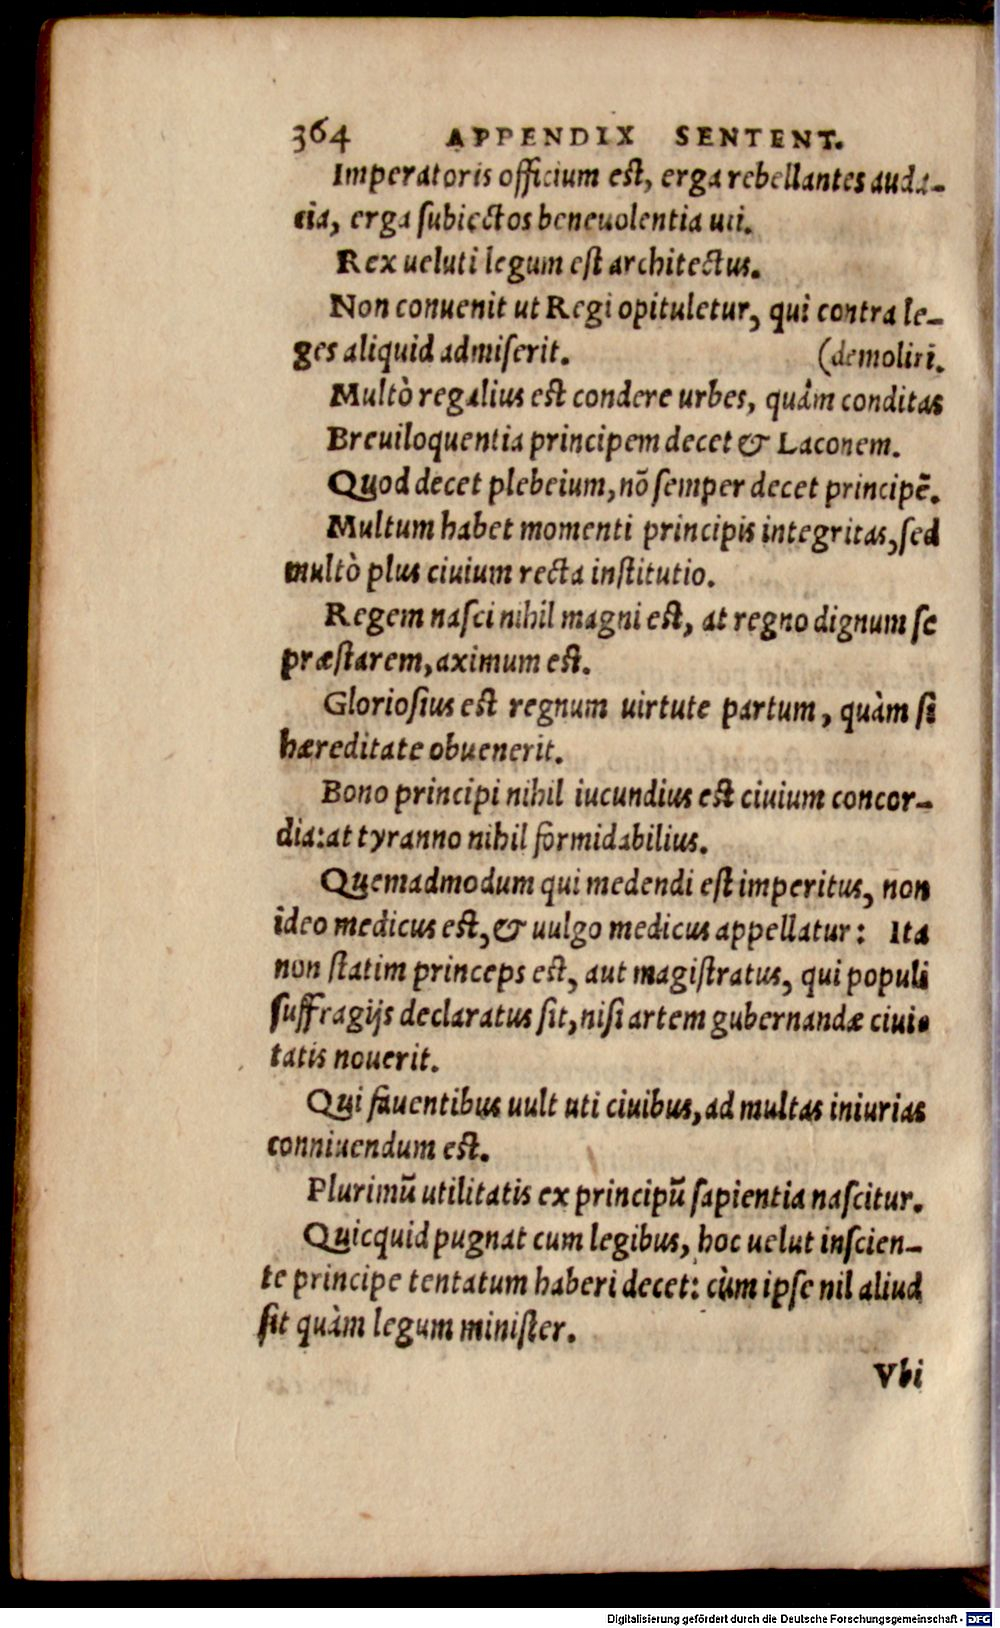 364 APPENDIX SENTENT.
Imperatoris officium est, erga rebellantes auda-
cia, erga subiectos beneuolentia uti.
Rex ueluti legum est architectus.
Non conuenit ut Regi opituletur, qui contra le-
ges aliquid admiserit. (demoliri.
Multò regalius est condere urbes, quàm conditas
Breuiloquentia principem decet & Laconem.
Quod decet plebeium, nõ semper decet principẽ.
Multum habet momenti principis integritas, sed
multò plus ciuium recta institutio.
Regem nasci nihil magni est, at regno dignum se
præstarem, aximum est.
Gloriosius est regnum uirtute partum, quàm si
hæreditate obuenerit.
Bono principi nihil iucundius est ciuium concor-
dia: at tyranno nihil formidabilius.
Quemadmodum qui medendi est imperitus, non
ideo medicus est, & uulgo medicus appellatur: Ita
non statim princeps est, aut magistratus, qui populi
suffragijs declaratus sit, nisi artem gubernandæ ciui-
tatis nouerit.
Qui fauentibus uult uti ciuibus, ad multas iniurias
conniuendum est.
Plurimũ utilitatis ex principũ sapientia nascitur.
Quicquid pugnat cum legibus, hoc uelut inscien-
te principe tentatum haberi decet: cùm ipse nil aliud
sit quàm legum minister.
Vbi
Digitalisierung gefördert durch die Deutsche Forschungsgemeinschaft - DFG